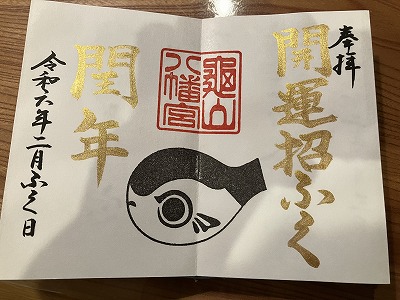 奉拝
開運招ふく
龜山
八幡宮
関年
令和六年二月ふく日